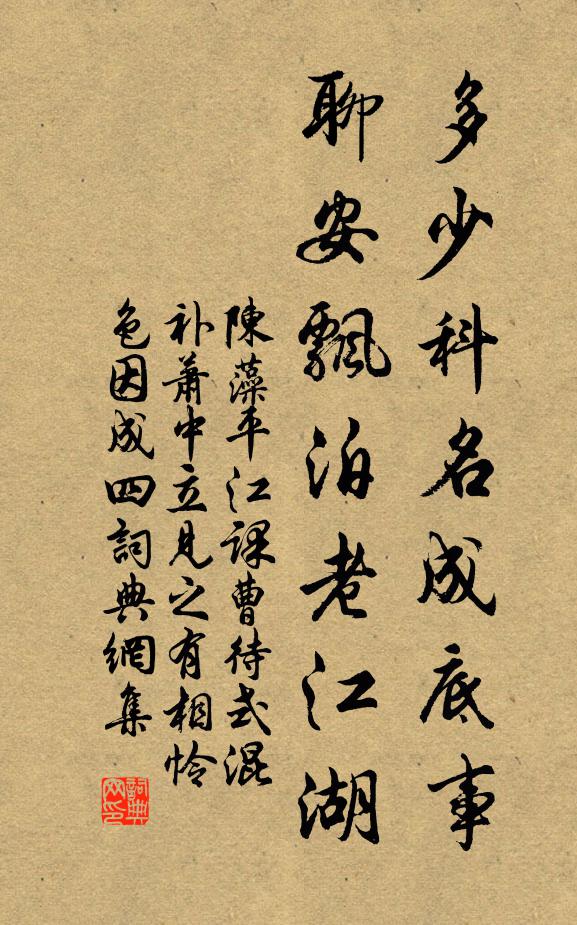 多少科名成底事
聊安飄泊老江湖
陳藻平江課曹待式混
补蕭中立見之有相怜
色因成四詞典網集
詞典网印